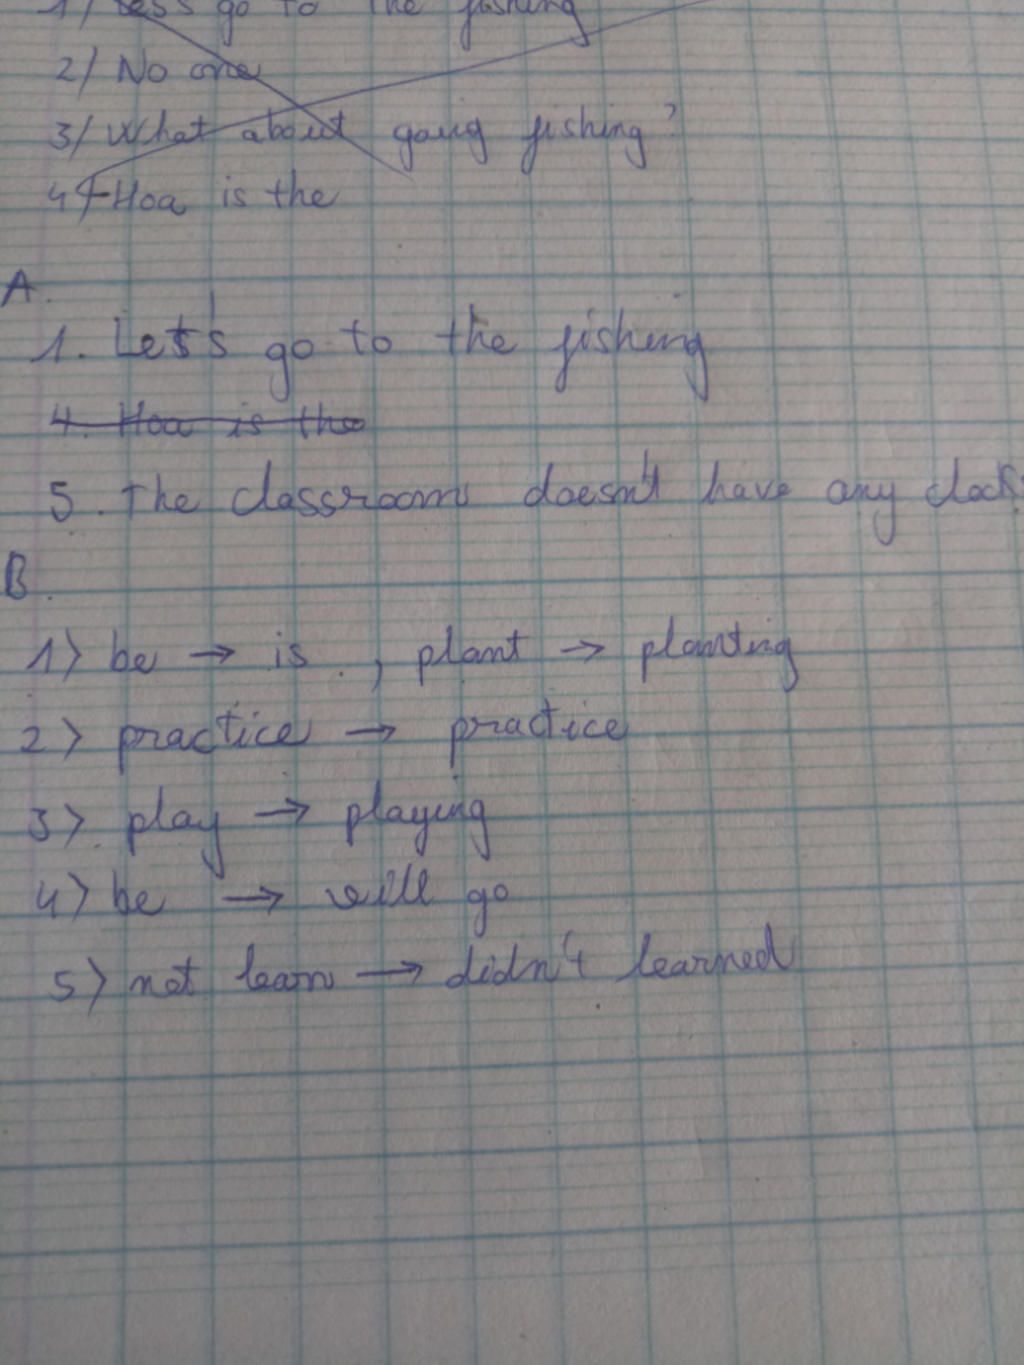 1/ Let's go to the fishing
2/ No one
3/ What about going fishing?
4/ Hoa is the
A.
1. Let's go to the fishing
4. Hoa is the
5. The classroom doesn't have any clocks
B.
1> be → is , plant → planting
2> practice → practice
3> play → playing
4> be → will go
5> not learn → didn't learned